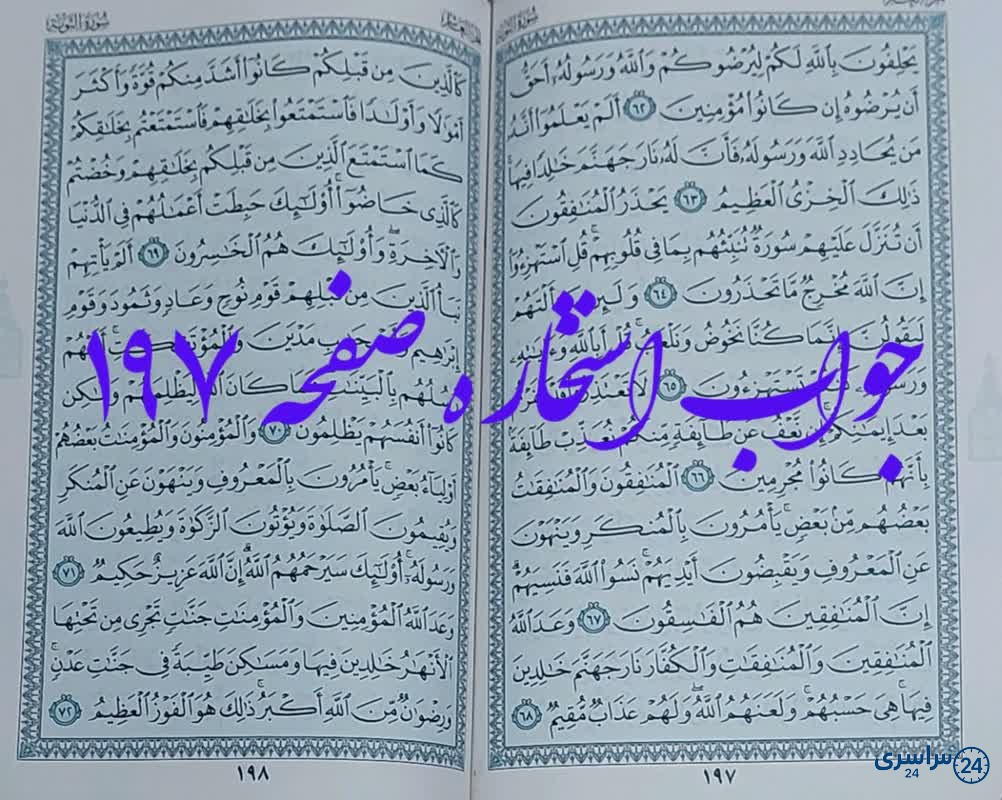 سُورَةُ التَّوْبَةِ
يَحْلِفُونَ بِٱللَّهِ لَكُمْ لِيُرْضُوكُمْ وَٱللَّهُ وَرَسُولُهُۥٓ أَحَقُّ
أَن يُرْضُوهُ إِن كَانُوا۟ مُؤْمِنِينَ ٦٢ أَلَمْ يَعْلَمُوٓا۟ أَنَّهُۥ
مَن يُحَادِدِ ٱللَّهَ وَرَسُولَهُۥ فَأَنَّ لَهُۥ نَارَ جَهَنَّمَ خَٰلِدًا فِيهَا ۚ
ذَٰلِكَ ٱلْخِزْىُ ٱلْعَظِيمُ ٦٣ يَحْذَرُ ٱلْمُنَٰفِقُونَ
أَن تُنَزَّلَ عَلَيْهِمْ سُورَةٌ تُنَبِّئُهُم بِمَا فِى قُلُوبِهِمْ ۚ قُلِ ٱسْتَهْزِءُوٓا۟
إِنَّ ٱللَّهَ مُخْرِجٌ مَّا تَحْذَرُونَ ٦٤ وَلَئِن سَأَلْتَهُمْ
لَيَقُولُنَّ إِنَّمَا كُنَّا نَخُوضُ وَنَلْعَبُ ۚ قُلْ أَبِٱللَّهِ وَءَايَٰتِهِۦ
وَرَسُولِهِۦ كُنتُمْ تَسْتَهْزِءُونَ ٦٥ لَا تَعْتَذِرُوا۟ قَدْ كَفَرْتُم
بَعْدَ إِيمَٰنِكُمْ ۚ إِن نَّعْفُ عَن طَآئِفَةٍ مِّنكُمْ نُعَذِّبْ طَآئِفَةًۢ
بِأَنَّهُمْ كَانُوا۟ مُجْرِمِينَ ٦٦ ٱلْمُنَٰفِقُونَ وَٱلْمُنَٰفِقَٰتُ
بَعْضُهُم مِّنۢ بَعْضٍ ۚ يَأْمُرُونَ بِٱلْمُنكَرِ وَيَنْهَوْنَ
عَنِ ٱلْمَعْرُوفِ وَيَقْبِضُونَ أَيْدِيَهُمْ ۚ نَسُوا۟ ٱللَّهَ فَنَسِيَهُمْ ۗ
إِنَّ ٱلْمُنَٰفِقِينَ هُمُ ٱلْفَٰسِقُونَ ٦٧ وَعَدَ ٱللَّهُ
ٱلْمُنَٰفِقِينَ وَٱلْمُنَٰفِقَٰتِ وَٱلْكُفَّارَ نَارَ جَهَنَّمَ خَٰلِدِينَ
فِيهَا ۚ هِىَ حَسْبُهُمْ ۚ وَلَعَنَهُمُ ٱللَّهُ ۖ وَلَهُمْ عَذَابٌ مُّقِيمٌ ٦٨
١٩٧
سُورَةُ التَّوْبَةِ
كَٱلَّذِينَ مِن قَبْلِكُمْ كَانُوٓا۟ أَشَدَّ مِنكُمْ قُوَّةً وَأَكْثَرَ
أَمْوَٰلًا وَأَوْلَٰدًا فَٱسْتَمْتَعُوا۟ بِخَلَٰقِهِمْ فَٱسْتَمْتَعْتُم بِخَلَٰقِكُمْ
كَمَا ٱسْتَمْتَعَ ٱلَّذِينَ مِن قَبْلِكُم بِخَلَٰقِهِمْ وَخُضْتُمْ
كَٱلَّذِى خَاضُوٓا۟ ۚ أُو۟لَٰٓئِكَ حَبِطَتْ أَعْمَٰلُهُمْ فِى ٱلدُّنْيَا
وَٱلْءَاخِرَةِ ۖ وَأُو۟لَٰٓئِكَ هُمُ ٱلْخَٰسِرُونَ ٦٩ أَلَمْ يَأْتِهِمْ
نَبَأُ ٱلَّذِينَ مِن قَبْلِهِمْ قَوْمِ نُوحٍ وَعَادٍ وَثَمُودَ وَقَوْمِ
إِبْرَٰهِيمَ وَأَصْحَٰبِ مَدْيَنَ وَٱلْمُؤْتَفِكَٰتِ ۚ أَتَتْهُمْ
رُسُلُهُم بِٱلْبَيِّنَٰتِ ۖ فَمَا كَانَ ٱللَّهُ لِيَظْلِمَهُمْ وَلَٰكِن
كَانُوٓا۟ أَنفُسَهُمْ يَظْلِمُونَ ٧٠ وَٱلْمُؤْمِنُونَ وَٱلْمُؤْمِنَٰتُ بَعْضُهُمْ
أَوْلِيَآءُ بَعْضٍ ۚ يَأْمُرُونَ بِٱلْمَعْرُوفِ وَيَنْهَوْنَ عَنِ ٱلْمُنكَرِ
وَيُقِيمُونَ ٱلصَّلَوٰةَ وَيُؤْتُونَ ٱلزَّكَوٰةَ وَيُطِيعُونَ ٱللَّهَ
وَرَسُولَهُۥٓ ۚ أُو۟لَٰٓئِكَ سَيَرْحَمُهُمُ ٱللَّهُ ۗ إِنَّ ٱللَّهَ عَزِيزٌ حَكِيمٌ ٧١
وَعَدَ ٱللَّهُ ٱلْمُؤْمِنِينَ وَٱلْمُؤْمِنَٰتِ جَنَّٰتٍ تَجْرِى مِن تَحْتِهَا
ٱلْأَنْهَٰرُ خَٰلِدِينَ فِيهَا وَمَسَٰكِنَ طَيِّبَةً فِى جَنَّٰتِ عَدْنٍ ۚ
وَرِضْوَٰنٌ مِّنَ ٱللَّهِ أَكْبَرُ ۚ ذَٰلِكَ هُوَ ٱلْفَوْزُ ٱلْعَظِيمُ ٧٢
١٩٨
جواب استخاره صفحه ۱۹۷
سراسری 24
24